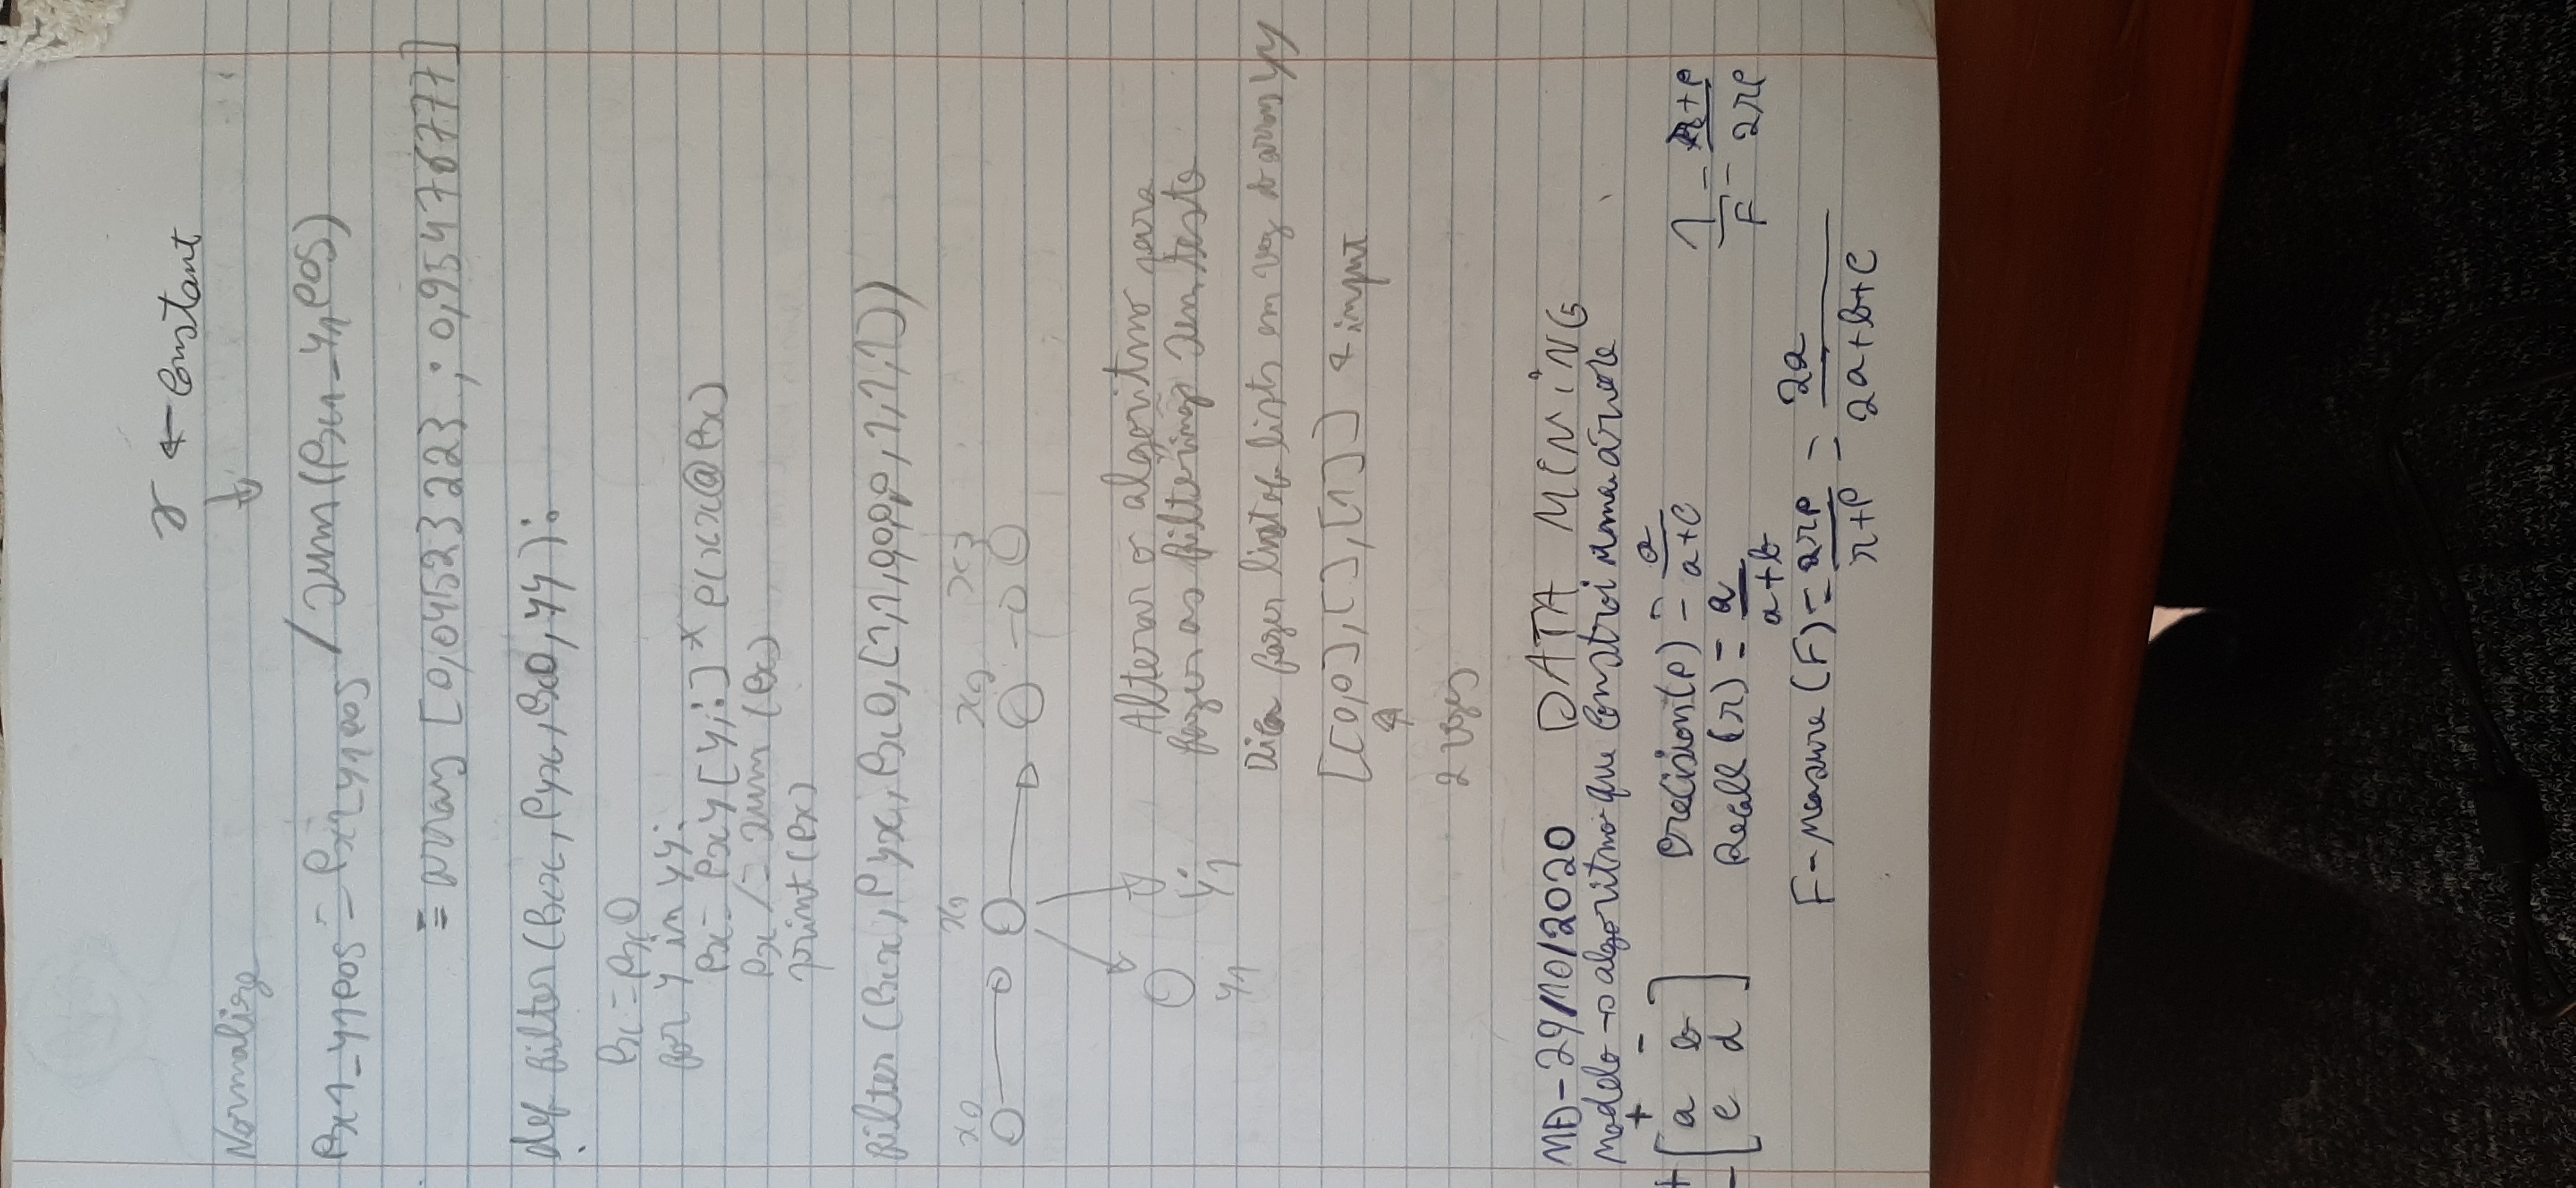 γ ← Constant
Normalize ↓
Px1_y1pos = Px1_y1pos / sum(Px1_y1pos)
= array [0,04523223; 0,95476777]
def filter (Pxx, Pyx, Px0, yy):
Px = Px0
for y in yy:
Px = Pxy[y,:] * P(xx@Px)
Px /= sum(Px)
print(Px)
filter (Pxx, Pyx, Px0, [1,1,0,0,0,1,1,1,1])
x0 x1 x2 x3
y1 y2
Alterar o algoritmo para
fazer as filterings sem teste
fazer list of lists em vez d array yy
[[0,0],[],[1]] ← input
2 vezes
MD - 29/10/2020 DATA MiNiNG
Modelo → algoritmo que constroi uma árvore
+ -
+ [a b]
- [c d]
Precision(p) = a / a+c
Recall (r) = a / a+b
1 / F = r+p / 2rp
F-measure (F) = 2rp / r+p = 2a / 2a+b+c